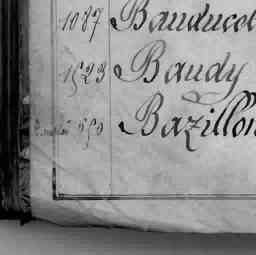 1087 Bauducel
1523 Baudy
Bazillon